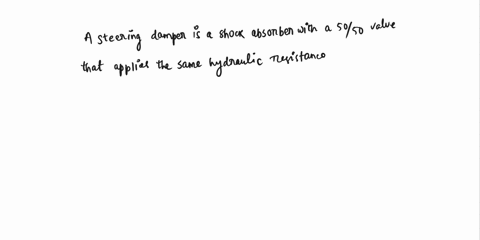 A steering damper is a shock absorber with a 50/50 value
that applies the same hydraulic resistance